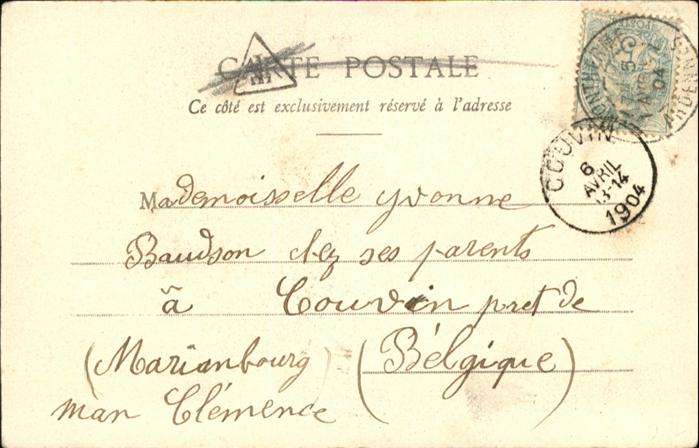 CARTE POSTALE
Ce côté est exclusivement réservé à l'adresse
COUVIN
6
AVRIL
13-14
1904
Mademoiselle yvonne
Baudson chez ses parents
à Couvin pret de
(Marianbourg) (Bélgique)
man Clémence